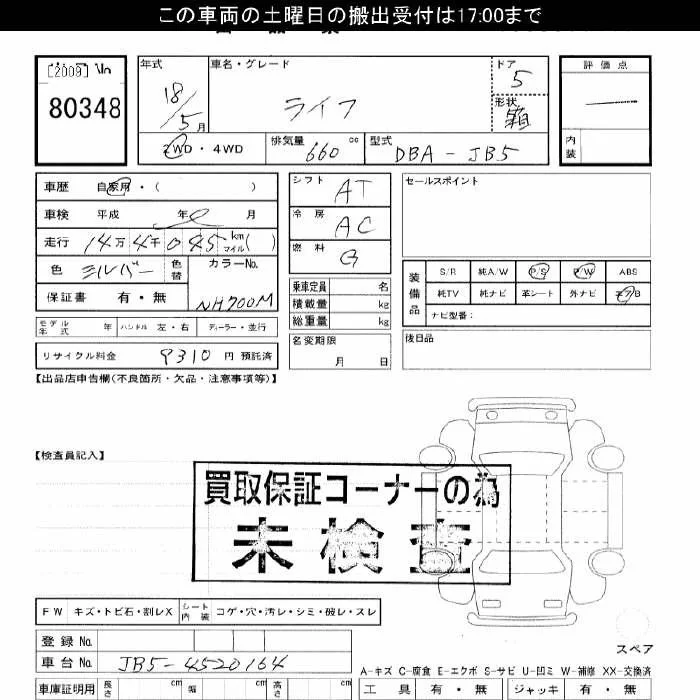 この車両の土曜日の搬出受付は17:00まで
[2009] No
80348
年式
18/5月
車名・グレード
ライフ
ドア
5
形状
箱
評価点
内装
2WD・4WD
排気量 660 cc
型式 DBA-JB5
車歴 自家用・( )
車検 平成 年 月
走行 14万4千045 km マイル( )
色 シルバー
色替
カラーNo.
NH700M
保証書 有・無
シフト AT
冷房 AC
燃料 G
乗車定員 名
積載量 kg
総重量 kg
セールスポイント
装備品
S/R 純A/W P/S P/W ABS
純TV 純ナビ 革シート 外ナビ エアB
ナビ型番:
モデル年式 年 ハンドル 左・右 ディーラー・並行
名変期限
月 日
後日品
リサイクル料金 9310 円 預託済
【出品店申告欄(不良箇所・欠品・注意事項等)】
【検査員記入】
買取保証コーナーの為
未検査
FW キズ・トビ石・割レX
シート内装 コゲ・穴・汚レ・シミ・破レ・スレ
登録No.
車台No. JB5-4520164
スペア
A-キズ C-腐食 E-エクボ S-サビ U-凹ミ W-補修 XX-交換済
車庫証明用 長さ cm 幅 cm 高さ cm
工具 有・無 ジャッキ 有・無